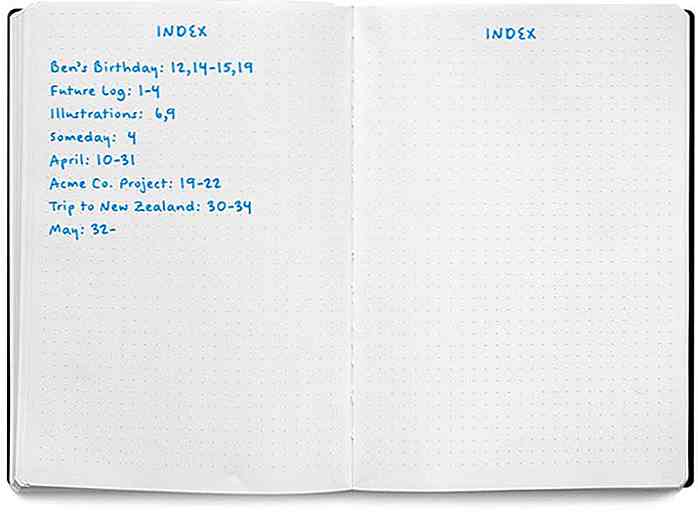 INDEX
Ben's Birthday: 12,14-15,19
Future Log: 1-4
Illustrations: 6,9
Someday: 4
April: 10-31
Acme Co. Project: 19-22
Trip to New Zealand: 30-34
May: 32-
INDEX